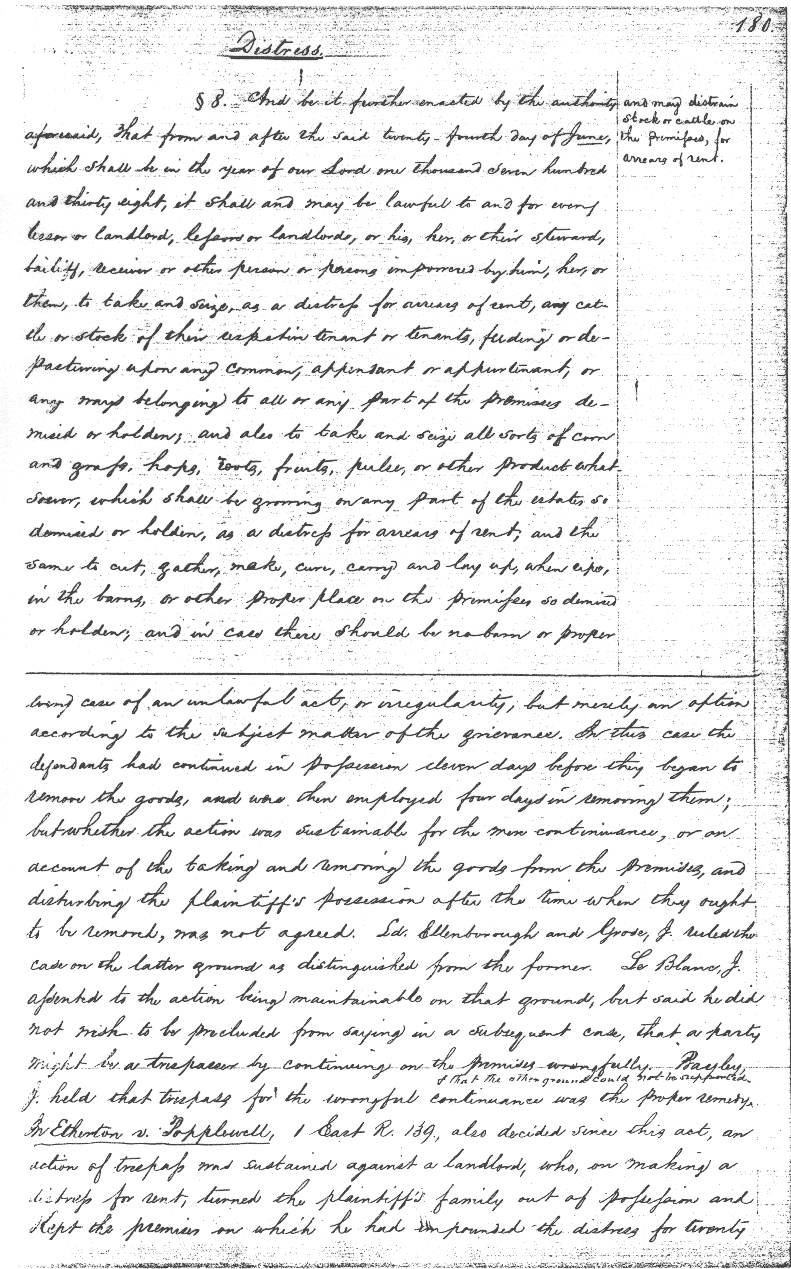 180.
Distress.
§ 8. And be it further enacted by the authority
aforesaid, That from and after the said twenty-fourth day of June,
which shall be in the year of our Lord one thousand seven hundred
and thirty eight, it shall and may be lawful to and for every
lessor or landlord, lessors or landlords, or his, her, or their steward,
bailiff, receiver or other person or persons impowered by him, her, or
them, to take and seize, as a distress for arrears of rent, any cat-
tle or stock of their respective tenant or tenants, feeding or de-
pasturing upon any common, appendant or appurtenant, or
any ways belonging to all or any part of the premisses de-
mised or holden; and also to take and seize all sorts of corn
and grass, hops, roots, fruits, pulse, or other product what-
soever, which shall be growing on any part of the estates so
demised or holden, as a distress for arrears of rent; and the
same to cut, gather, make, cure, carry and lay up, when ripe,
in the barns, or other proper place on the premisses so demised
or holden; and in case there should be no barn or proper
and may distrain
stock or cattle on
the premisses, for
arrears of rent.
every case of an unlawful act, or irregularity, but merely an option
according to the subject matter of the grievance. In this case the
defendants had continued in possession eleven days before they began to
remove the goods, and were then employed four days in removing them;
but whether the action was sustainable for the mere continuance, or on
account of the taking and removing the goods from the premises, and
disturbing the plaintiff's possession after the time when they ought
to be removed, was not agreed. Ld. Ellenborough and Grose, J. ruled the
case on the latter ground as distinguished from the former. Le Blanc, J.
assented to the action being maintainable on that ground, but said he did
not wish to be precluded from saying in a subsequent case, that a party
might be a trespasser by continuing on the premises wrongfully. Bayley,
& that the other ground could not be supported.
J. held that trespass for the wrongful continuance was the proper remedy.
In Etherton v. Popplewell, 1 East R. 139., also decided since this act, an
action of trespass was sustained against a landlord, who, on making a
distress for rent, turned the plaintiff's family out of possession and
kept the premises on which he had impounded the distress for twenty